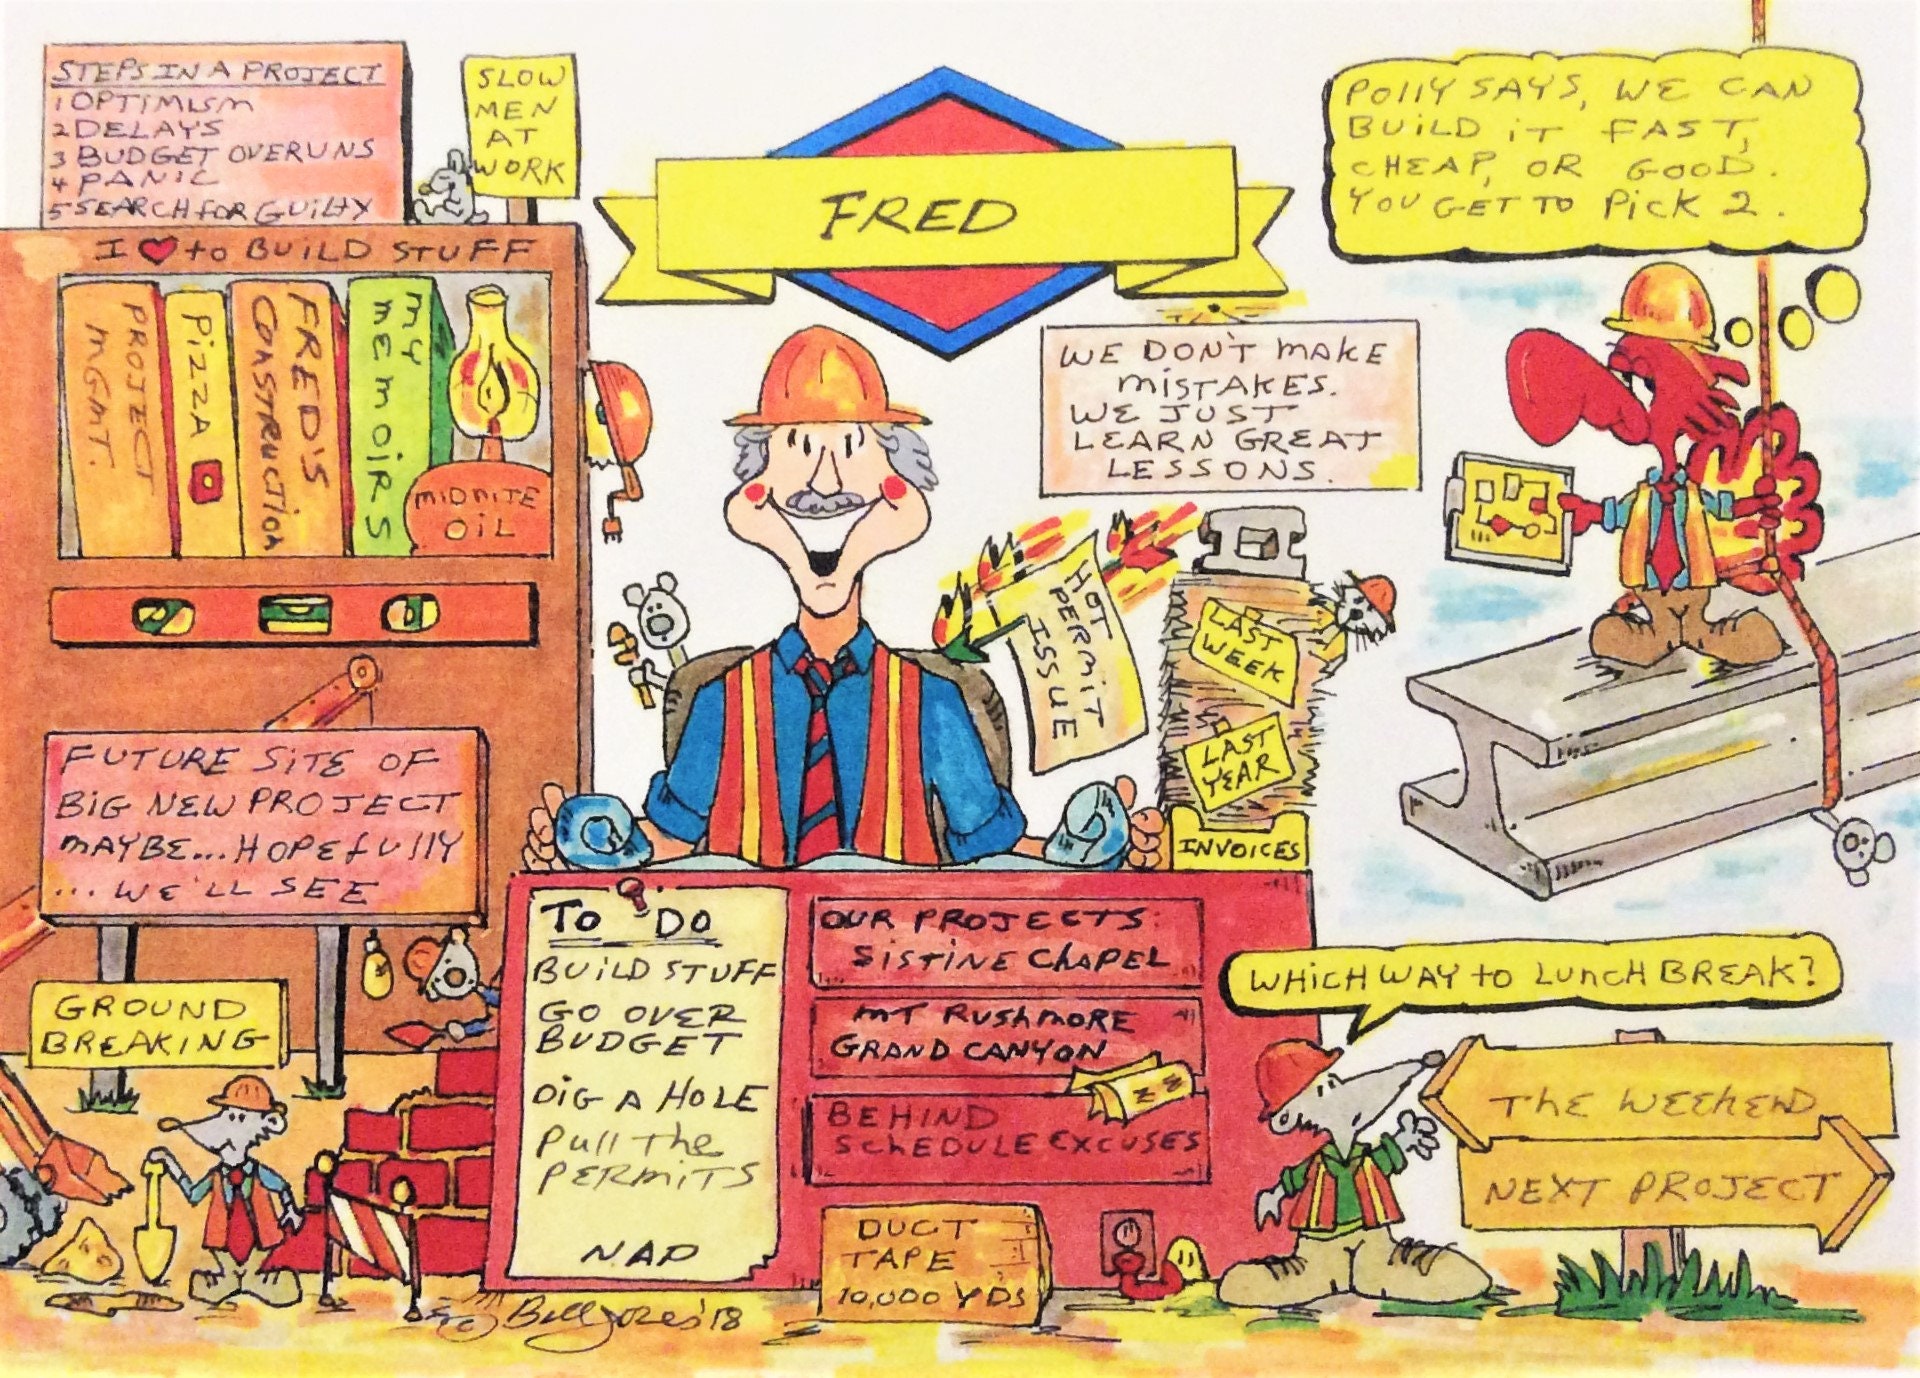 STEPS IN A PROJECT
1 OPTIMISM
2 DELAYS
3 BUDGET OVERUNS
4 PANIC
5 SEARCH FOR GUILTY
SLOW
MEN
AT
WORK
FRED
POllY SAYS, WE CAN
BUILD iT FAST,
CHEAP, OR GOOD.
YOU GET TO PiCK 2.
I ❤ to BUILD STUFF
PROJECT
MGMT.
PiZZA
FRED'S
COASTRUCTION
MY
MEMOIRS
MIDNITE
OIL
WE DON'T MAKE
MISTAKES.
WE JUST
LEARN GREAT
LESSONS.
HOT
PERMIT
ISSUE
LAST
WEEK
LAST
YEAR
INVOICES
FUTURE SITE OF
BIG NEW PROJECT
MAYBE... HOPEfUllY
... WE'LL SEE
GROUND
BREAKING
TO DO
BUILD STUFF
GO OVER
BUDGET
DIG A HOLE
PUll The
PERMITS
NAP
OUR PROJECTS:
SISTINE ChAPEL
MT RUSHMORE
GRAND CANYON
BEHIND
SCHEDULE EXCUSES
DUCT
TAPE
10,000 YDS
WHICH WAY to LUNCH BREAK?
ThE WEEKEND
NEXT PROJECT
© Bill Jones '18